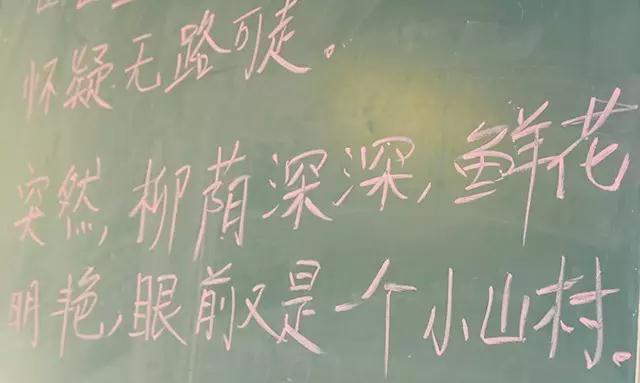 怀疑无路可走。
突然,柳荫深深,鲜花
明艳,眼前又是一个小山村。